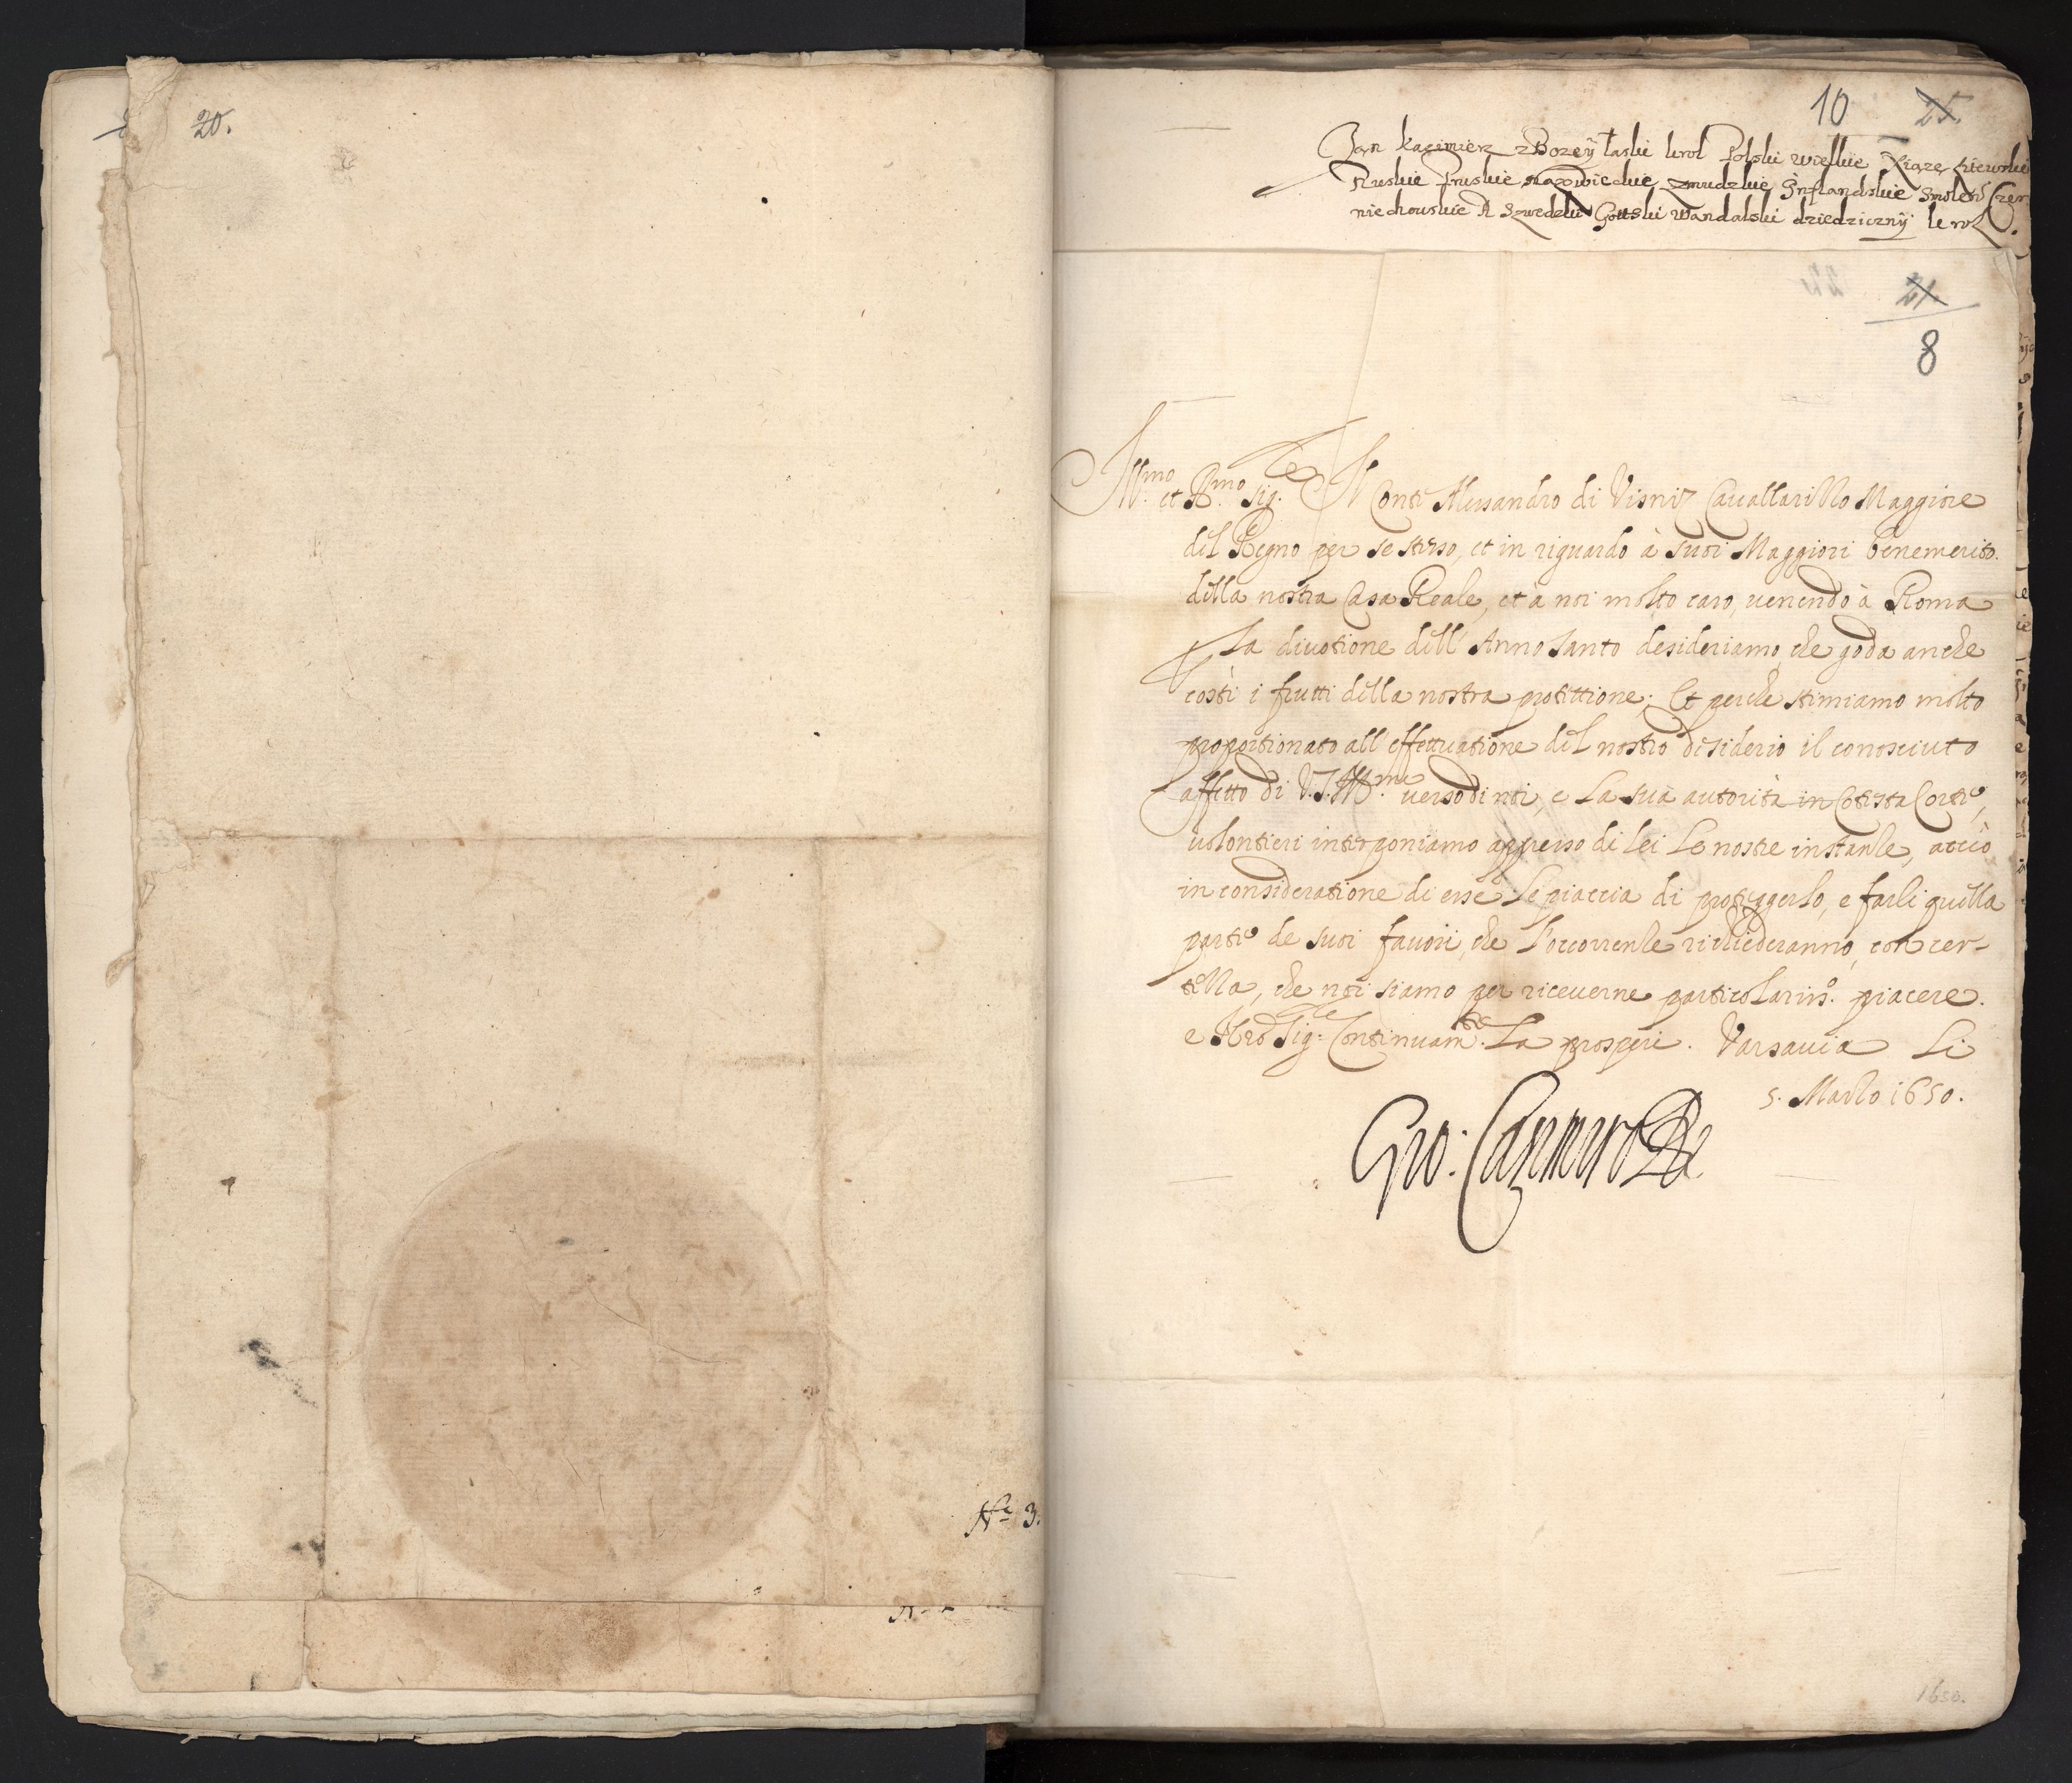 20.
Nº 3.
10 25.
Jan Kazimierz z Bozey łaski krol Polski wielkie Xiąże
Ruskie Pruskie Mazowieckie Zmudzkie Inflandskie Smolen Czer
niechowskie A Szwedzki Gottski Wandalski dziedziczny krol.
21.
8
Ill.mo et R.mo Sig.re Il Conte Alessandro di Visniz Cauallarizzo Maggiore
del Regno per se stesso, et in riguardo à suoi Maggiori benemerito
della nostra Casa Reale, et à noi molto caro, uenendo à Roma
la diuotione dell' Anno Santo desideriamo, che goda anche
costì i frutti della nostra protettione; Et perche stimiamo molto
proportionato all' effettuatione del nostro desiderio il conosciuto
affetto di V. S. Ill.ma uerso di noi, e la sua autorità in cotesta Corte,
uolontieri interponiamo appresso di lei le nostre instanze, acciò
in consideratione di esse le piaccia di proteggerlo, e farli quella
parte de suoi fauori, che l'occorrenze richiederanno, con cer-
tezza, che noi siamo per riceuerne particolariss.º piacere.
e N'ro Sig.re Continuam.te La prosperi. Varsauia Li
5. Marzo 1650.
Gio: Casimiro Re
1650.